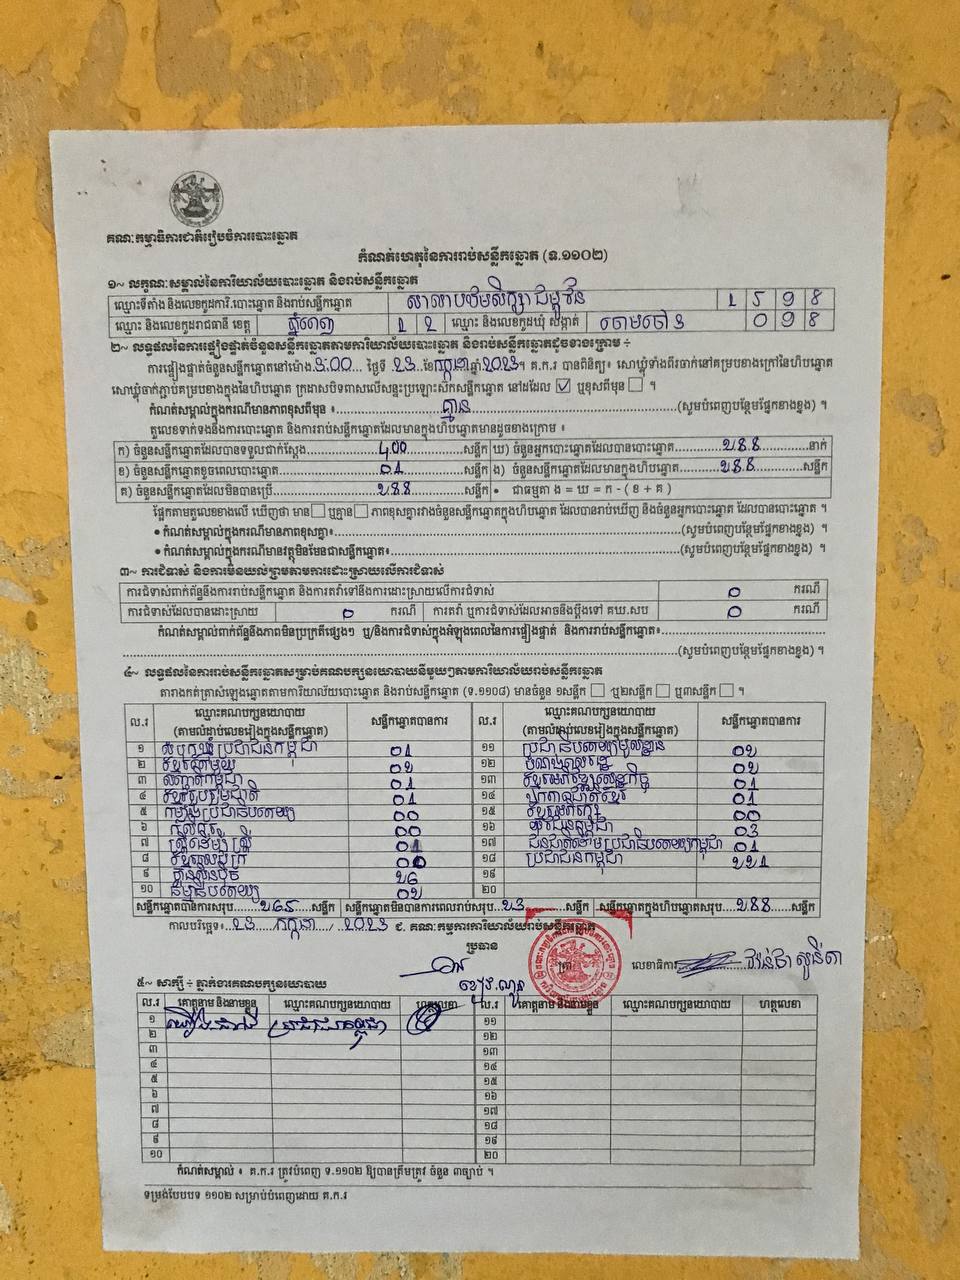 គណៈកម្មាធិការជាតិរៀបចំការបោះឆ្នោត
កំណត់ហេតុនៃការរាប់សន្លឹកឆ្នោត (ទ.១១០២)
១~ លក្ខណៈសម្គាល់នៃការិយាល័យបោះឆ្នោត និងរាប់សន្លឹកឆ្នោត
ឈ្មោះទីតាំង និងលេខកូដការិ.បោះឆ្នោត និងរាប់សន្លឹកឆ្នោត សាលាបឋមសិក្សា 1 5 9 8
ឈ្មោះ និងលេខកូដរាជធានី ខេត្ត ភ្នំពេញ 1 2 ឈ្មោះ និងលេខកូដឃុំ សង្កាត់ ចោមចៅ ១ 0 9 8
២~ លទ្ធផលនៃការផ្ទៀងផ្ទាត់ចំនួនសន្លឹកឆ្នោតតាមការិយាល័យបោះឆ្នោត និងរាប់សន្លឹកឆ្នោតដូចខាងក្រោម ÷
ការផ្ទៀងផ្ទាត់ចំនួនសន្លឹកឆ្នោតនៅម៉ោង ៣:00 ថ្ងៃទី ២៣ ខែកក្កដា ឆ្នាំ ២០២៣។ គ.ក.រ បានពិនិត្យ៖ សោឃ្លុំទាំងពីរចាក់នៅគម្របខាងក្រៅនៃហិបឆ្នោត
សោឃ្លុំចាក់ភ្ជាប់គម្របខាងក្នុងនៃហិបឆ្នោត ក្រដាសបិទពាសលើសន្ទះប្រឡោះស៊កសន្លឹកឆ្នោត នៅដដែល ☑ ឬខុសពីមុន ☐ ។
កំណត់សម្គាល់ក្នុងករណីមានភាពខុសពីមុន ៖ គ្មាន (សូមបំពេញបន្ថែមផ្នែកខាងខ្នង) ។
តួលេខទាក់ទងនឹងការបោះឆ្នោត និងការរាប់សន្លឹកឆ្នោតដែលមានក្នុងហិបឆ្នោតមានដូចខាងក្រោម ៖
ក) ចំនួនសន្លឹកឆ្នោតដែលបានទទួលជាក់ស្តែង 400 សន្លឹក ឃ) ចំនួនអ្នកបោះឆ្នោតដែលបានបោះឆ្នោត ២៨៨ នាក់
ខ) ចំនួនសន្លឹកឆ្នោតខូចពេលបោះឆ្នោត 01 សន្លឹក ង) ចំនួនសន្លឹកឆ្នោតដែលមានក្នុងហិបឆ្នោត ២៨៨ សន្លឹក
គ) ចំនួនសន្លឹកឆ្នោតដែលមិនបានប្រើ សន្លឹក • ជាធម្មតា ង = ឃ = ក - ( ខ + គ )
ផ្អែកតាមតួលេខខាងលើ ឃើញថា មាន ☐ ឬគ្មាន ☐ ភាពខុសគ្នារវាងចំនួនសន្លឹកឆ្នោតក្នុងហិបឆ្នោត ដែលបានរាប់ឃើញ និងចំនួនអ្នកបោះឆ្នោត ដែលបានបោះឆ្នោត ។
• កំណត់សម្គាល់ក្នុងករណីមានភាពខុសគ្នា៖ (សូមបំពេញបន្ថែមផ្នែកខាងខ្នង) ។
• កំណត់សម្គាល់ក្នុងករណីមានវត្ថុមិនមែនជាសន្លឹកឆ្នោត៖ (សូមបំពេញបន្ថែមផ្នែកខាងខ្នង) ។
៣~ ការជំទាស់ និងការមិនយល់ព្រមតាមការដោះស្រាយលើការជំទាស់
ការជំទាស់ពាក់ព័ន្ធនឹងការរាប់សន្លឹកឆ្នោត និងការតវ៉ាទៅនឹងការដោះស្រាយលើការជំទាស់ 0 ករណី
ការជំទាស់ដែលបានដោះស្រាយ 0 ករណី ការតវ៉ា ឬការជំទាស់ដែលអាចនឹងប្តឹងទៅ គឃ.សប 0 ករណី
កំណត់សម្គាល់ពាក់ព័ន្ធនឹងភាពមិនប្រក្រតីផ្សេងៗ ឬ/និងការជំទាស់ក្នុងអំឡុងពេលនៃការផ្ទៀងផ្ទាត់ និងការរាប់សន្លឹកឆ្នោត៖
(សូមបំពេញបន្ថែមផ្នែកខាងខ្នង) ។
៤~ លទ្ធផលនៃការរាប់សន្លឹកឆ្នោតសម្រាប់គណបក្សនយោបាយនីមួយៗតាមការិយាល័យរាប់សន្លឹកឆ្នោត
តារាងកត់ត្រាសំឡេងឆ្នោតតាមការិយាល័យបោះឆ្នោត និងរាប់សន្លឹកឆ្នោត (ទ.១១០៨) មានចំនួន ១សន្លឹក ☐ ឬ២សន្លឹក ☐ ឬ៣សន្លឹក ☐ ។
ល.រ ឈ្មោះគណបក្សនយោបាយ សន្លឹកឆ្នោតបានការ ល.រ ឈ្មោះគណបក្សនយោបាយ សន្លឹកឆ្នោតបានការ
(តាមលំដាប់លេខរៀងក្នុងសន្លឹកឆ្នោត) (តាមលំដាប់លេខរៀងក្នុងសន្លឹកឆ្នោត)
១ 01 ១១ ប្រជាធិបតេយ្យមូលដ្ឋាន 0២
២ ខ្មែររួមរួម 0២ ១២ 0២
៣ សញ្ជាតិកម្ពុជា 01 ១៣ ខ្មែរអភិវឌ្ឍន៍សេដ្ឋកិច្ច 01
៤ ខ្មែររួបរួមជាតិ 01 ១៤ ឯកភាពជាតិខ្មែរ 01
៥ កម្លាំងប្រជាធិបតេយ្យ 00 ១៥ ខ្មែរអភិរក្ស 00
៦ កសិករ 00 ១៦ យុវជនកម្ពុជា 0៣
៧ ស្ត្រីដើម្បីស្ត្រី 01 ១៧ ជនជាតិដើមប្រជាធិបតេយ្យកម្ពុជា 01
៨ ខ្មែរឈប់ក្រ ១៨ ប្រជាជនកម្ពុជា ២២1
៩ ហ៊្វុនស៊ិនប៉ិច ២6 ១៩
១០ ធម្មាធិបតេយ្យ 0២ ២០
សន្លឹកឆ្នោតបានការសរុប ២6៥ សន្លឹក សន្លឹកឆ្នោតមិនបានការពេលរាប់សរុប ២៣ សន្លឹក សន្លឹកឆ្នោតក្នុងហិបឆ្នោតសរុប ២៨៨ សន្លឹក
កាលបរិច្ឆេទ៖ ២៣ / កក្កដា / ២០២៣ ៩. គណៈកម្មការការិយាល័យរាប់សន្លឹកឆ្នោត
ប្រធាន
ត្រា លេខាធិការ
៥~ សាក្សី ÷ ភ្នាក់ងារគណបក្សនយោបាយ
ល.រ គោត្តនាម និងនាមខ្លួន ឈ្មោះគណបក្សនយោបាយ ហត្ថលេខា ល.រ គោត្តនាម និងនាមខ្លួន ឈ្មោះគណបក្សនយោបាយ ហត្ថលេខា
១ ប្រជាជនកម្ពុជា ១១
២ ១២
៣ ១៣
៤ ១៤
៥ ១៥
៦ ១៦
៧ ១៧
៨ ១៨
៩ ១៩
១០ ២០
កំណត់សម្គាល់ ៖ គ.ក.រ ត្រូវបំពេញ ទ.១១០២ ឱ្យបានត្រឹមត្រូវ ចំនួន ៣ច្បាប់ ។
ទម្រង់បែបបទ ១១០២ សម្រាប់បំពេញដោយ គ.ក.រ